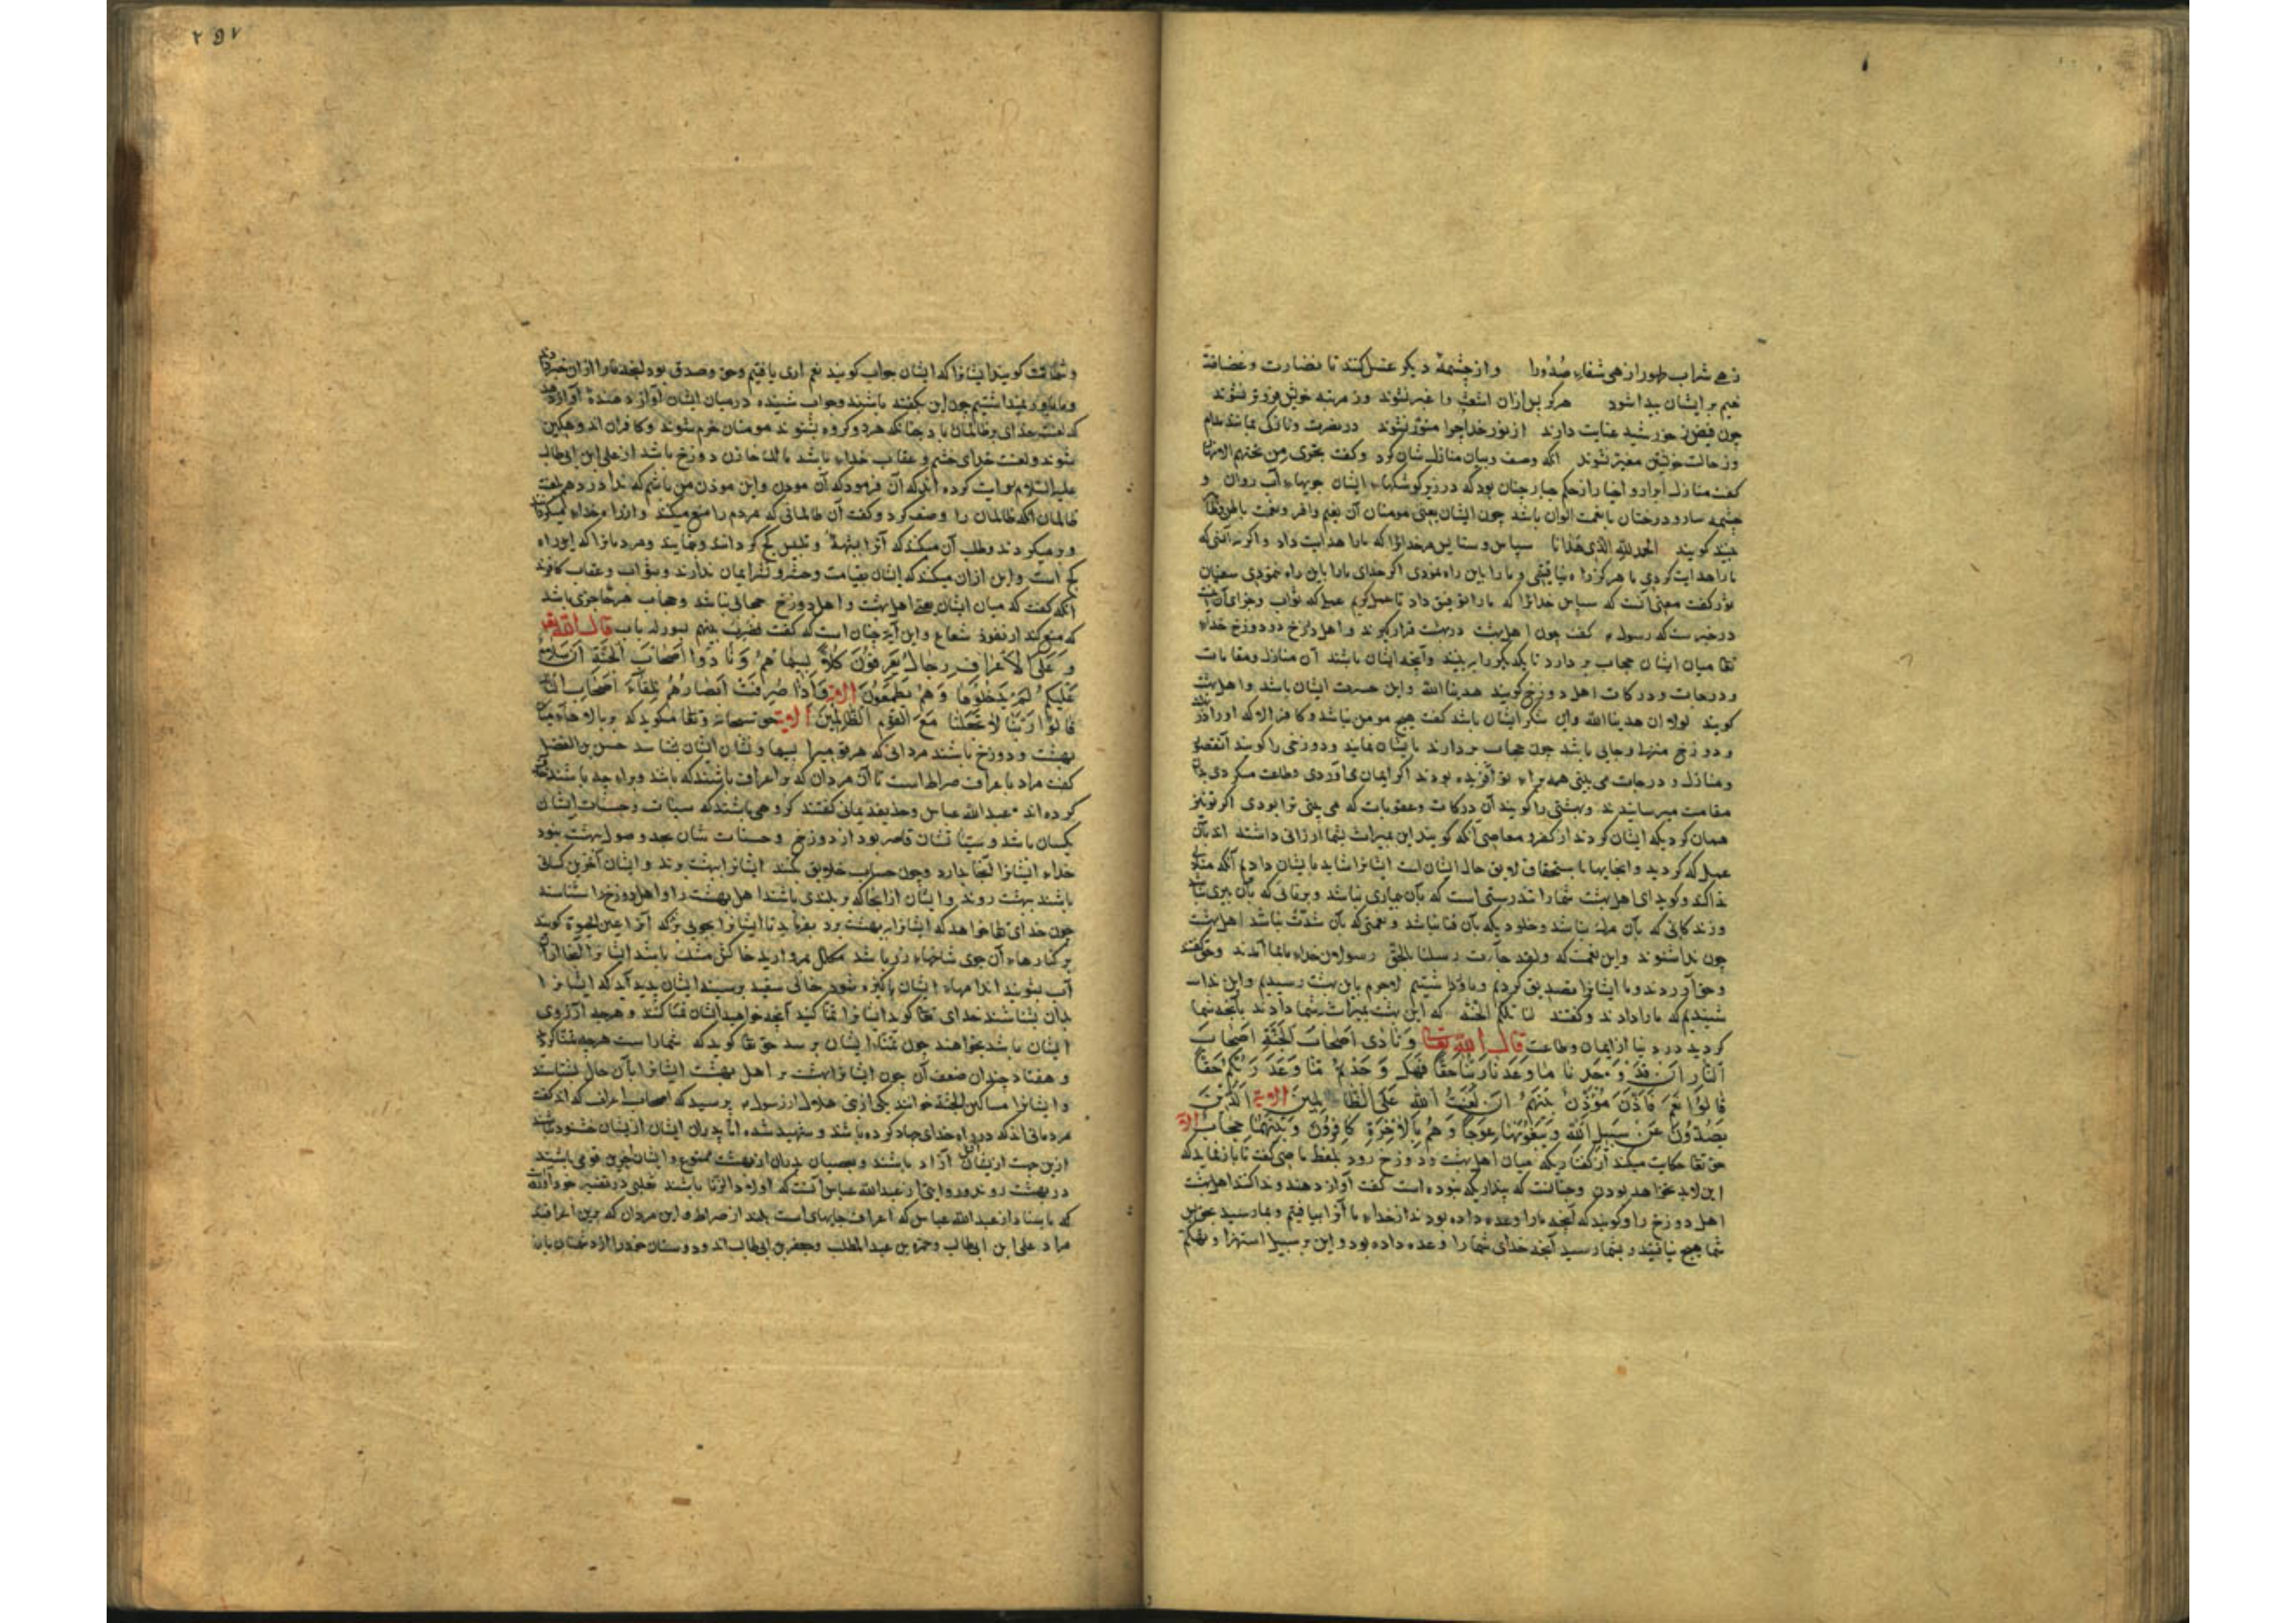 زهی شراب طهور از هی شفاء صدورا و از چشمهٔ دیگر غسل کنند تا نضارت و غضاضة
نعیم بر ایشان پیدا شود هرگز پس از آن اشعث و اغبر نشوند و ز مرتبه خویش فروتر نشوند
چون فیض ز خورشید عنایت دارند از نور خدا چرا منور نشوند در نضرت و نازکی بمانند مدام
وز حالت خویش مغیر نشوند آنگه وصف و بیان منازل شان کرد و گفت تجری من تحتهم الانهار
گفت منازل ابرار و اخیار از حکم جبار چنان بود که در زیر کوشکهاء ایشان جویهاء آب روان و
چشمه سار و درختان با نعمت الوان باشد چون ایشان یعنی مومنان آن نعیم وافر و نعمت
بینند گویند الحمد لله الذی هدانا سپاس و ستایش مر خدایرا که ما را هدایت داد و اگر نه آنستی که
ما را هدایت کردی ما هرگز راه نیافتیمی و ما را باین راه نمودی اگر خدای ما را باین راه ننمودی سفیان
ثور گفت معنی آنست که سپاس خدایرا که ما را توفیق داد تا عمل کردیم عملی که ثواب و جزای آن
در خبر ست که رسول گفت چون اهل بهشت در بهشت قرار گیرند و اهل دوزخ در دوزخ خدای
تعا میان ایشان حجاب بر دارد تا یکدیگر را ببینند و آنچه ایشان باشند آن منازل و مقامات
و درجات و درکات اهل دوزخ گویند هدینا الله و این حسرت ایشان باشد و اهل بهشت
گویند لولا ان هدینا الله و این شکر ایشان باشد گفت هیچ مومن نباشد و کافر الا که او را در
و دوزخ منزلی و جایی باشد چون حجاب بر دارند با ایشان نمایند و دوزخی را گویند
و منازل و درجات می بینی همه برای تو آفریده بودند اگر ایمان می آوردی و طاعت میکردی
مقامت میرسانیدند و بهشتی را گویند آن درکات و عقوبات که می بینی ترا بودی اگر تو نیز
همان کردی که ایشان کردند از کفر و معاصی آنگه گویند این بمیراث بشما ارزانی داشتند
عمل که کردید
ندا کند و گوید ای اهل بهشت شما را تندرستی است که بآن بیماری نباشد و برنائی که بآن پیری نباشد
و زندگانی که بآن مرگ نباشد و خلودی که بآن فنا نباشد و نعمتی که بآن شدت نباشد اهل بهشت
چون ندا شنوند و این نعمت که و لقد جاءت رسل ربنا بالحق رسولان خدای بما آمدند و حق گفتند
و حق آوردند و ما ایشانرا تصدیق کردیم لاجرم باین بهشت رسیدیم و این ندا
شنیدیم که ما را دادند و گفتند لنا تلکم الجنة که این بهشت بمیراث بشما دادند بآنچه شما
کردید در دنیا از ایمان و طاعت قال الله تعالی وَنَادَى أَصْحَابَ الْجَنَّةِ أَصْحَابَ
النَّارِ أَنْ قَدْ وَجَدْنَا مَا وَعَدَنَا رَبُّنَا حَقًّا فَهَلْ وَجَدْتُمْ مَا وَعَدَ رَبُّكُمْ حَقًّا
قَالُوا نَعَمْ فَأَذَّنَ مُؤَذِّنٌ بَيْنَهُمْ أَنْ لَعْنَتُ اللَّهِ عَلَى الظَّالِمِينَ الایة الَّذِينَ
يَصُدُّونَ عَنْ سَبِيلِ اللَّهِ وَيَبْغُونَهَا عِوَجًا وَهُمْ بِالْآخِرَةِ كَافِرُونَ وَبَيْنَهُمَا حِجَابٌ الایة
حق تعا حکایت میکند از گفتاری که میان اهل بهشت و دوزخ رود بلفظ ماضی گفت تا باز نماید که
این لابد بخواهد بودن و چنانست که پنداری که بوده است گفت آواز دهند و ندا کنند اهل بهشت
اهل دوزخ را و گویند که آنچه ما را وعده داده بودند از خدای ما آنرا بیافتیم و بما رسید
شما هیچ نیافتید و بشما رسید آنچه خدای شما را وعده داده بود و این بر سبیل استهزا و تهکم
۲۹۷
و شماتت گویند ایشانرا که ایشان جواب گویند نعم اری یافتیم و حق و صدق بود آنچه ما را از آن خبر دادند
و ما باور نمیداشتیم چون این گفته باشند و جواب شنیده در میان ایشان آواز دهندهٔ آواز دهد
که لعنت خدای بر ظالمان باد چنانکه هر دو گروه بشنوند مومنان خرم شوند و کافران اندوهگین
شوند و لعنت خدای خشم و عقاب خدای باشد خازن دوزخ باشد از علی ابن ابی طالب
علیه السلام روایت کرده اند که آن فرمود که آن موذن و این موذن من باشم که ندا در دهم لعنت
ظالمان آنگه ظالمان را وصف کرد و گفت آن ظالمانی که مردم را منع میکنند و از راه خدای
و طلب آن میکنند که آنرا بشبهه و تلبیس کج گردانند و نمایند و مردمانرا که این راه
کج است و این از آن میکنند که ایشان بقیامت و حشر و نشر ایمان ندارند و بثواب و عقاب کافرند
آنگه گفت که میان ایشان یعنی اهل بهشت و اهل دوزخ حجابی باشد و حجاب هر حاجزی باشد
که منع کند از نفوذ شعاع و این آیه چنان است که گفت فضرب بینهم بسور له باب قال الله تعا
وَعَلَى الْأَعْرَافِ رِجَالٌ يَعْرِفُونَ كُلًّا بِسِيمَاهُمْ وَنَادَوْا أَصْحَابَ الْجَنَّةِ أَنْ سَلَامٌ
عَلَيْكُمْ لَمْ يَدْخُلُوهَا وَهُمْ يَطْمَعُونَ الایة وَإِذَا صُرِفَتْ أَبْصَارُهُمْ تِلْقَاءَ أَصْحَابِ النَّارِ
قَالُوا رَبَّنَا لَا تَجْعَلْنَا مَعَ الْقَوْمِ الظَّالِمِينَ الایة حق سبحانه و تعا میگوید که بر بالای حجاب میان
بهشت و دوزخ باشند مردانی که هر فریق را بسیما و نشان ایشان شناسند حسن بن الفضل
گفت مراد باعراف صراط است تا آن مردان که بر اعراف باشند که باشد و برای چه باشند
کرده اند عبد الله عباس و حذیفه یمانی گفتند گروهی باشند که سیئات و حسنات ایشان
یکسان باشد و سیئاتشان قاصر بود از دوزخ و حسنات شان بحد وصول بهشت نبود
خدای ایشانرا آنجا بدارد و چون حساب خلایق بکنند ایشانرا ببهشت برند و ایشان آخرین کسانی
باشند ببهشت روند و ایشان از آنجا که بر بلندی باشند اهل بهشت را و اهل دوزخ را شناسند
چون خدای تعا خواهد که ایشانرا ببهشت برد بفرماید تا ایشانرا بجویی برند که آنرا عین الحیوة گویند
بر کنارهاء آن جوی شاخهاء زر باشد مکلل بمروارید خاکش مشک باشد ایشانرا
آب بشویند اندامهاء ایشان پاکیزه شود خالی سفید بر سینه ایشان پدید آید که ایشانرا
بدان بشناسند خدای تعا گوید ایشانرا تمنا کنید آنچه خواهید ایشان تمنا کنند و هرچه آرزوی
ایشان باشد بخواهند چون تمناء ایشان برسد حق تعا گوید که شما راست هرچه تمنا کردید
و هفتاد چندان ضعف آن چون ایشانرا بهشت بر اهل بهشت ایشانرا بآن حال بشناسند
و ایشانرا مساکین الجنة خوانند یکی از بنی هلال از رسول پرسید که اصحاب اعراف که اند گفت
مردمانی اند که در راه خدای جهاد کرده باشند و شهید شده اما پدران ایشان از ایشان خشنود نباشند
ازین جهت از آتش آزاد باشند و بعصیان پدران از بهشت ممنوع و ایشان آخرین قومی باشند
در بهشت روند و روایتی از عبد الله عباس آنست که اولاد الزنا باشند ثعلبی در تفسیر خود آورده
که باسناد از عبد الله عباس که اعراف جایهای است بلند از صراط و این مردان که برین اعراف اند
مراد علی ابن ابی طالب و حمزه بن عبد المطلب و جعفر بن ابی طالب اند و دوستان خود را از دشمنان بدان